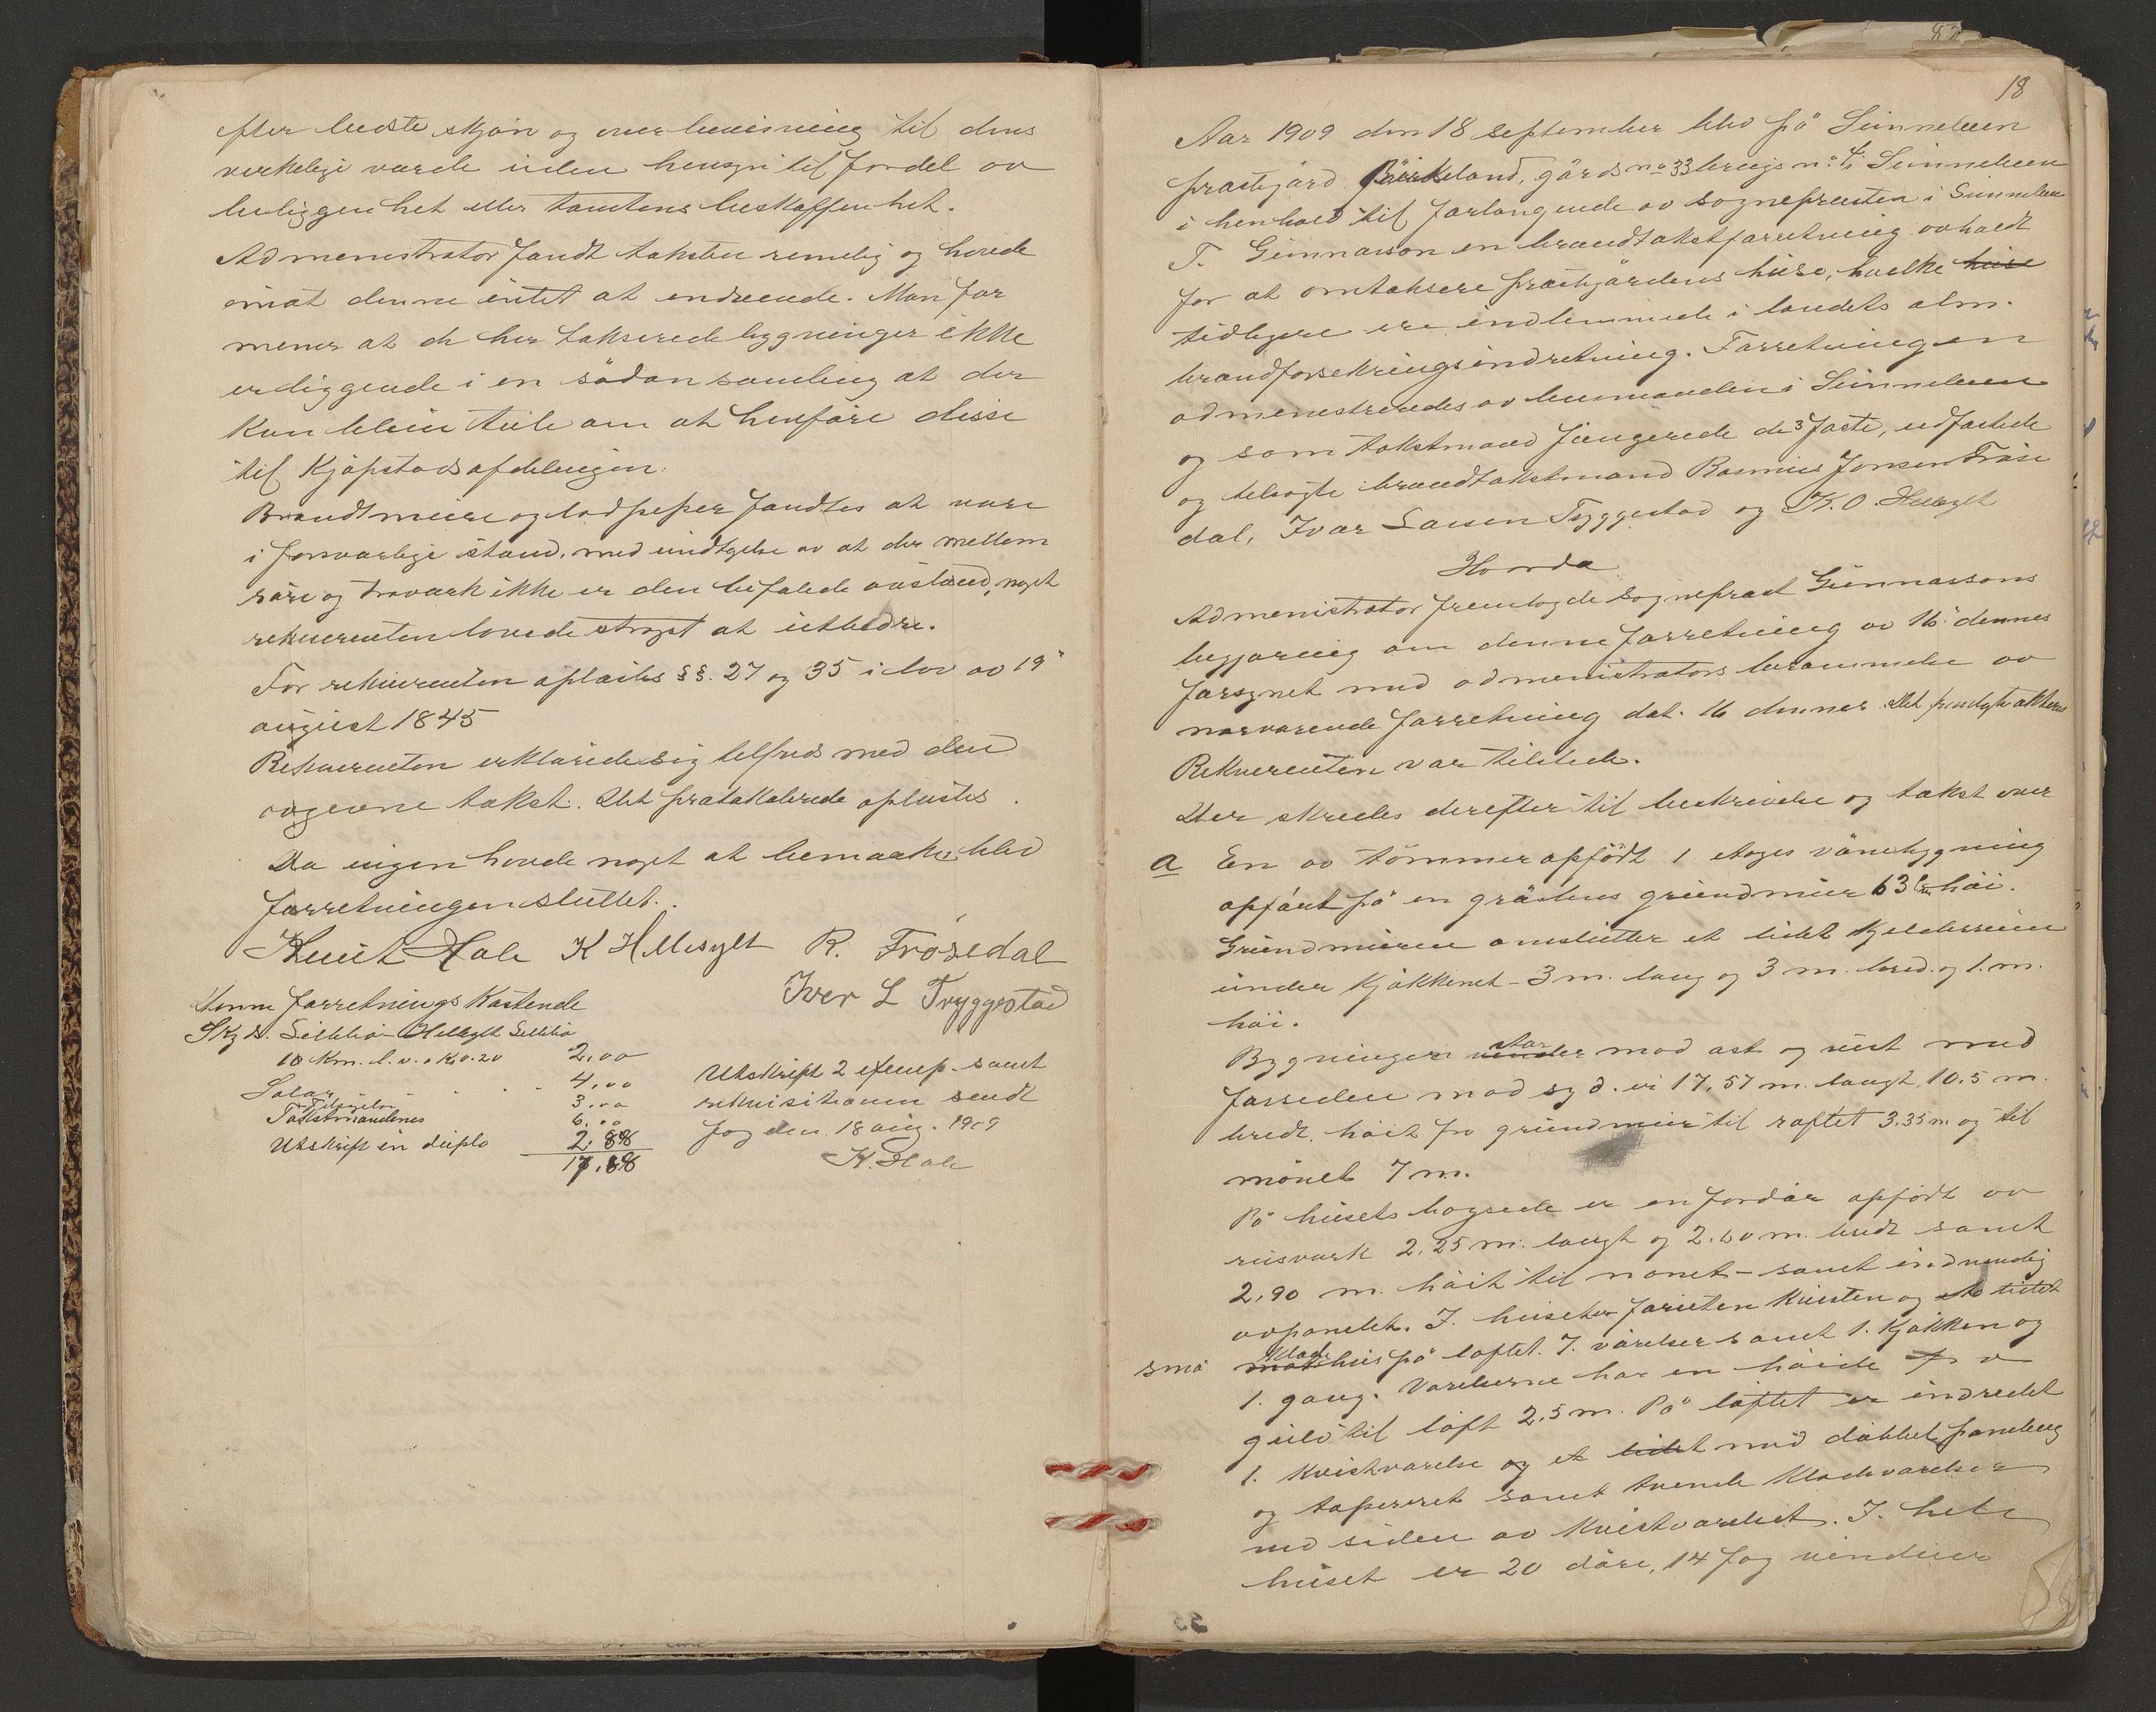 efter bedste skjøn og overbevisning til dens
verkelige værde uden hensyn til fordel av
beliggenhet eller tomtens beskaffenhet.
Admenistrator fandt taksten remelig og havde
imot denne intet at endvende. Man for
mener at de her takserede bygninger ikke
er liggende i en sådan samling at der
kan bleive tale om at henføre disse
til Kjøpstadsafdelingen.
Brandtmure og lodpiper fandtes at være
i forsvarlige stand, med undtgelse av at der mellem
røre og træværk ikke er den befalede avstand, noget
rekverenten lovede stragst at utbedre.
For rekverenten oplæstes §§. 27 og 35 i lov av 19"
august 1845
Rekverenten erklærede sig telfreds med den
avgevne takst. Det protokolerede oplæstes.
Da ingen havde noget at bemærke, blev
forretningen sluttet.
Knut Hole K Hellesylt R. Frøsedal
Iver L Tryggestad
Denne forretnings kostende
Skyds. Hellesylt
10 Km. l. v. a Kr 0.20 2,00
Salær 4,00
3,00
Takstmændenes 6,00
Utskrift in duplo 2,88
17,88
Utskrift 2 exemp. samt
rekvisitionen sendt
fog den 18 aug. 1909
K. Hole
18
Aar 1909 den 18 september blev på Sunnelven
præstgård Bjørkeland, gårds no 33 brugs no. 4 i Sunnelven
i henhold til forlangende av sognepresten i Sunnelven
T. Gunnarson en brandtakstforretning avholdt
for at omtaksere præstgårdens huse, hvelke huse
tidligere ere indlemmede i landets alm.
brandforsekringsindretning. Forretningen
admenestreredes av lensmanden i Sunnelven
og som takstmænd fungerede de 3 faste, udfæstede
og edsvogte brandtakstmænd Rasmus Jonsen Frøse
dal, Ivar Larsen Tryggestad og K. O. Hellesylt
Hvorda
Admenistrator fremlagde sogneprest Gunnarsons
begjæring om denne forretning av 16" dennes
forsynet med admenistrators berammelse av
nærværende forretning dat. 16 dennes. Det fremlagte akteres
Rekverenten var tilstede.
Der skredes derefter til beskrivelse og takst over
a En av tømmer opført 1 etages vånebygning
opført på en gråstens grundmur 63 cm. høi.
Grundmuren omslutter et lidet kjelderrum
under kjøkkenet - 3 m. lang og 3 m. bred. og 1. m.
høi.
Bygningen vender står mod øst og vest med
forseden mod syd. er 17,57 m. langt, 10.5 m.
bredt. høit fra grundmur til raftet 3.35 m. og til
mønet 7 m.
På husets bagsede er en fordør opført av
reisværk 2.25 m. langt og 2.60 m. bredt samt
2,90 m. høit til mønet - samt indvendig
avpanelet. I huset er foruten kvisten og et lidet
små mat Klæde hus på loftet. 7. værelser samt 1. kjøkken og
1. gang. Værelserne har en høide fra
gulv til loft 2.5 m. På loftet er indredet
1. kvistværelse og et lidet med dobbel paneling
og taperet samt tvende klædeværelser
ved siden av kvistværelset. I hele
huset er 20 døre, 14 fog vinduer